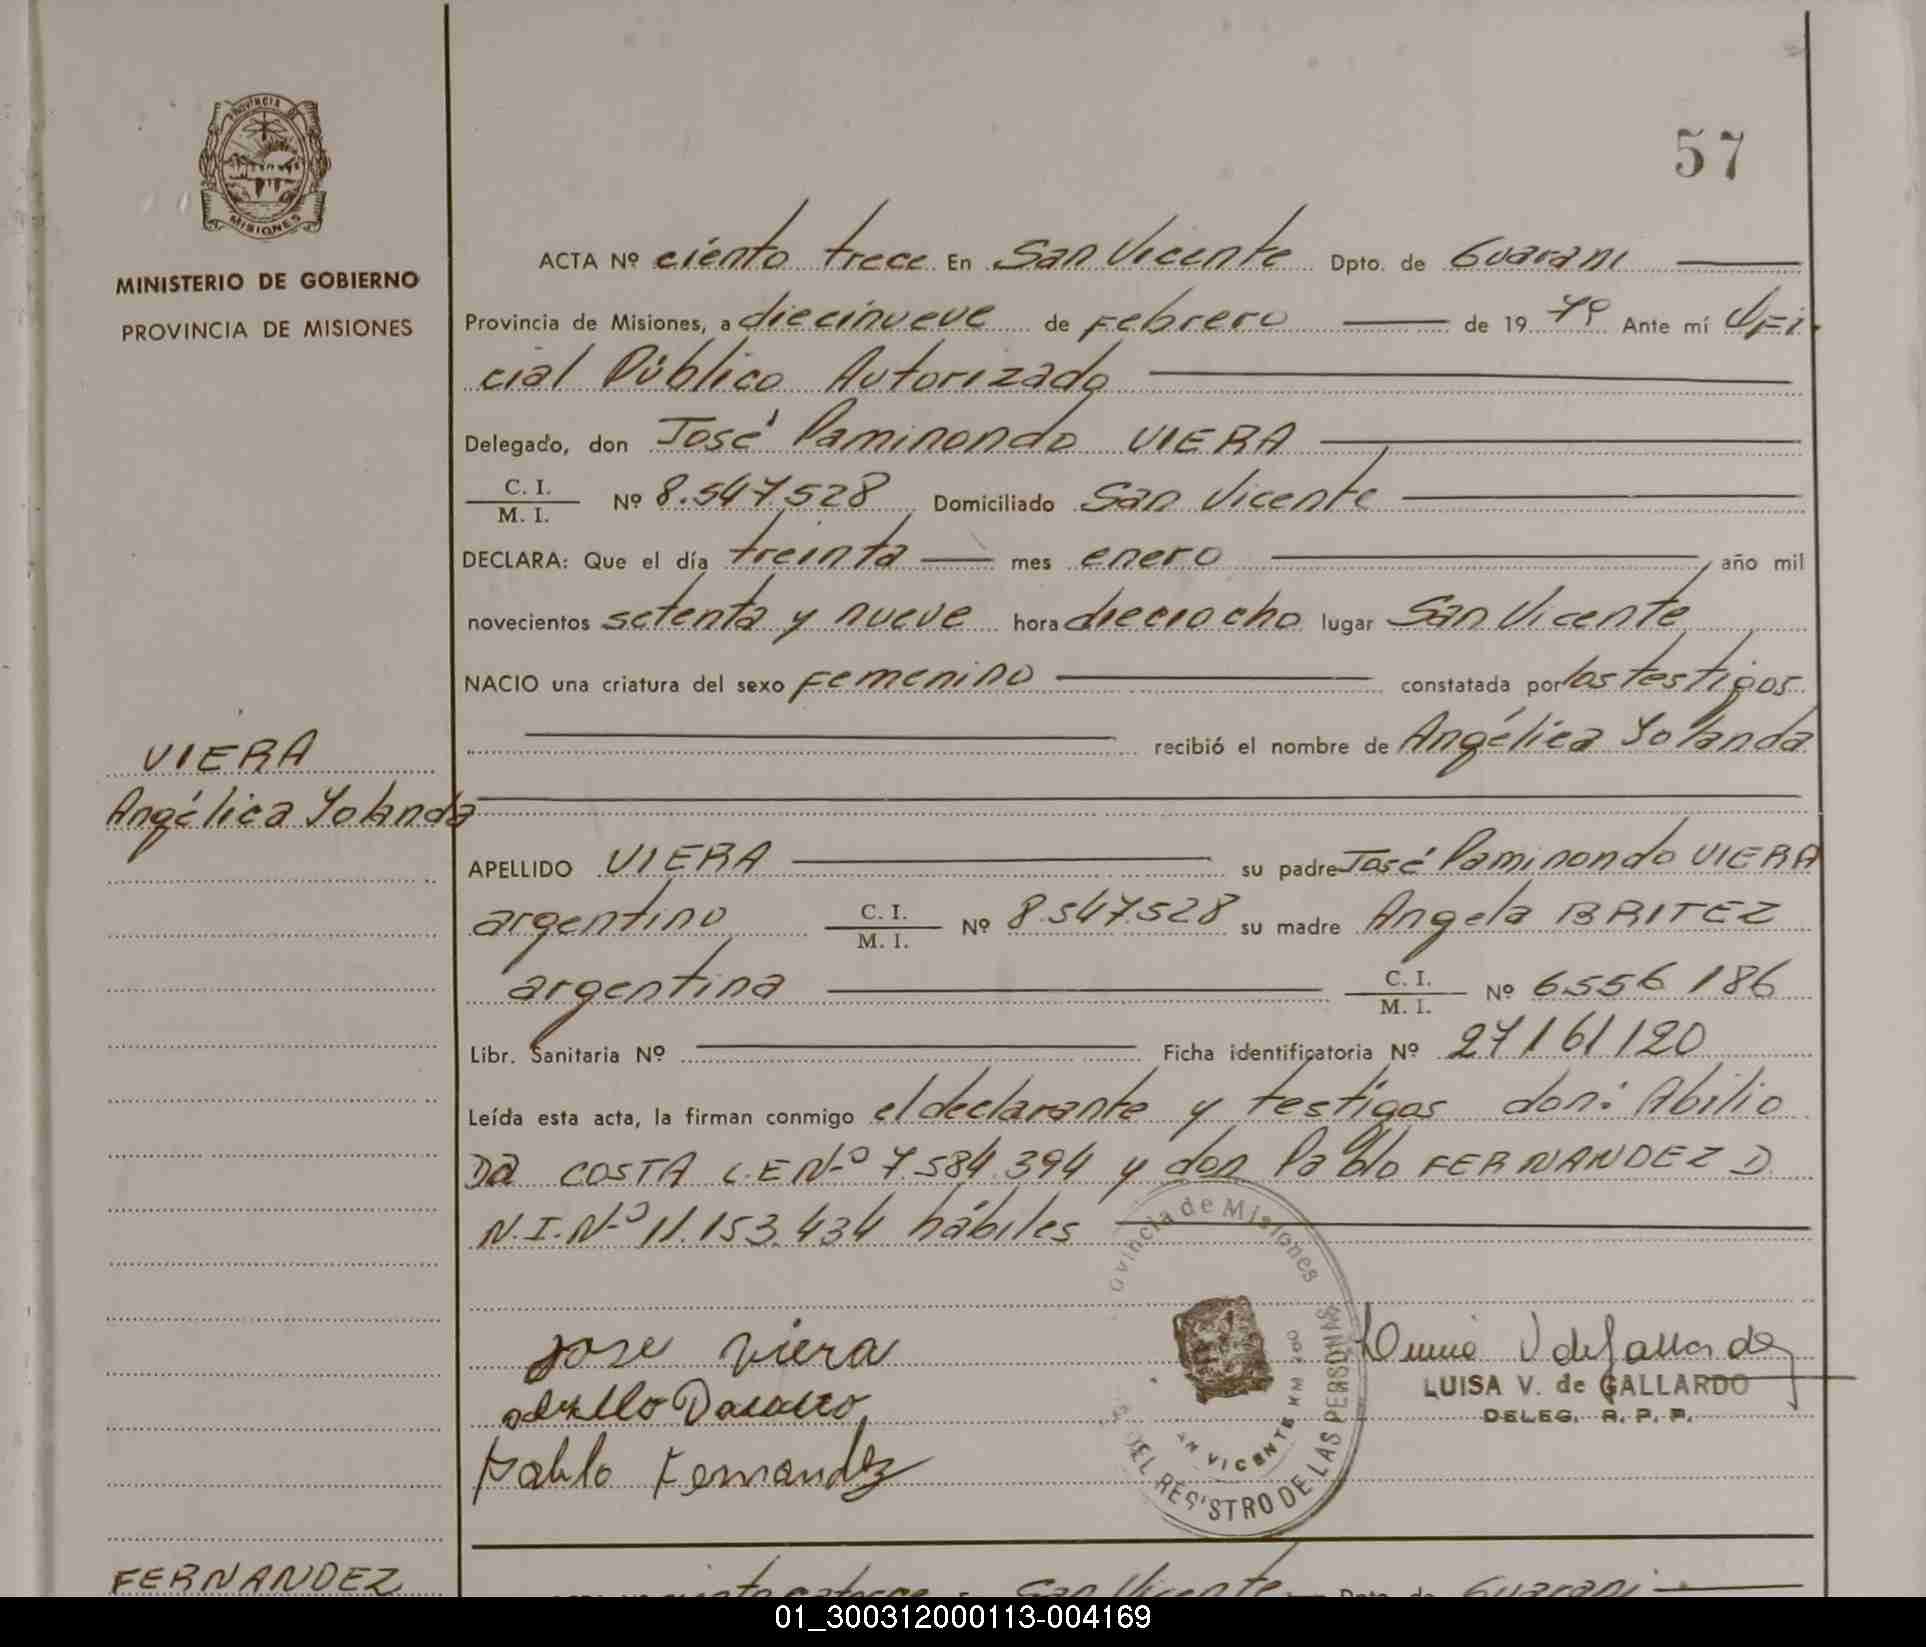 PROVINCIA DE
MISIONES
MINISTERIO DE GOBIERNO
PROVINCIA DE MISIONES
57
ACTA Nº ciento trece En San Vicente Dpto. de Guarani
Provincia de Misiones, a diecinueve de Febrero de 19 79 Ante mí Ofi
cial Público Autorizado
Delegado, don José Paminondo VIERA
C. I.
M. I. Nº 8.547.528 Domiciliado San Vicente
DECLARA: Que el día treinta mes enero año mil
novecientos setenta y nueve hora dieciocho lugar San Vicente
NACIO una criatura del sexo Femenino constatada por los testigos
recibió el nombre de Angélica Yolanda
VIERA
Angélica Yolanda
APELLIDO VIERA su padre José Paminondo VIERA
argentino C. I.
M. I. Nº 8.547.528 su madre Angela BRITEZ
argentina C. I.
M. I. Nº 6556186
Libr. Sanitaria Nº Ficha identificatoria Nº 27161120
Leída esta acta, la firman conmigo el declarante y testigos don: Abilio
Da COSTA L.E Nº 7.584.394 y don Pablo FERNANDEZ D.
N.I.Nº 11.153.434 hábiles
ovincia de Misiones
DEL REGISTRO DE LAS PERSONAS
AN VICENTE KM 200
Jose Viera
Pablo Fernandez
LUISA V. de GALLARDO
DELEG. R. P. P.
FERNANDEZ
ciento catorce San Vicente Dpto. de Guarani
01_300312000113-004169